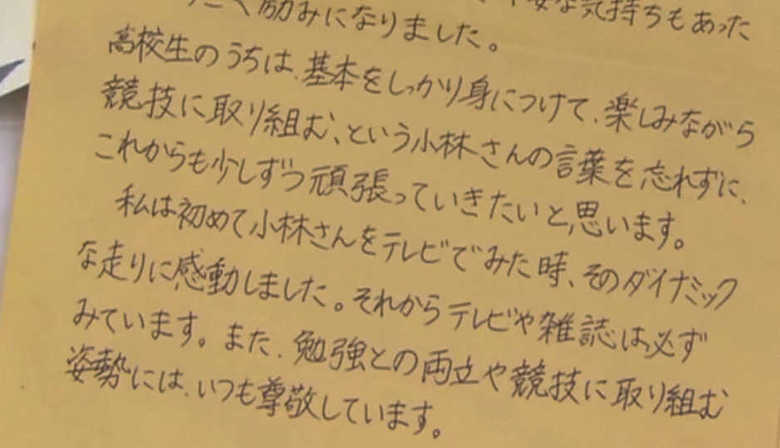 不安な気持ちもあった
く励みになりました。
高校生のうちは、基本をしっかり身につけて、楽しみながら
競技に取り組む、という小林さんの言葉を忘れずに、
これからも少しずつ頑張っていきたいと思います。
私は初めて小林さんをテレビでみた時、そのダイナミック
な走りに感動しました。それからテレビや雑誌は必ず
みています。また、勉強との両立や競技に取り組む
姿勢には、いつも尊敬しています。